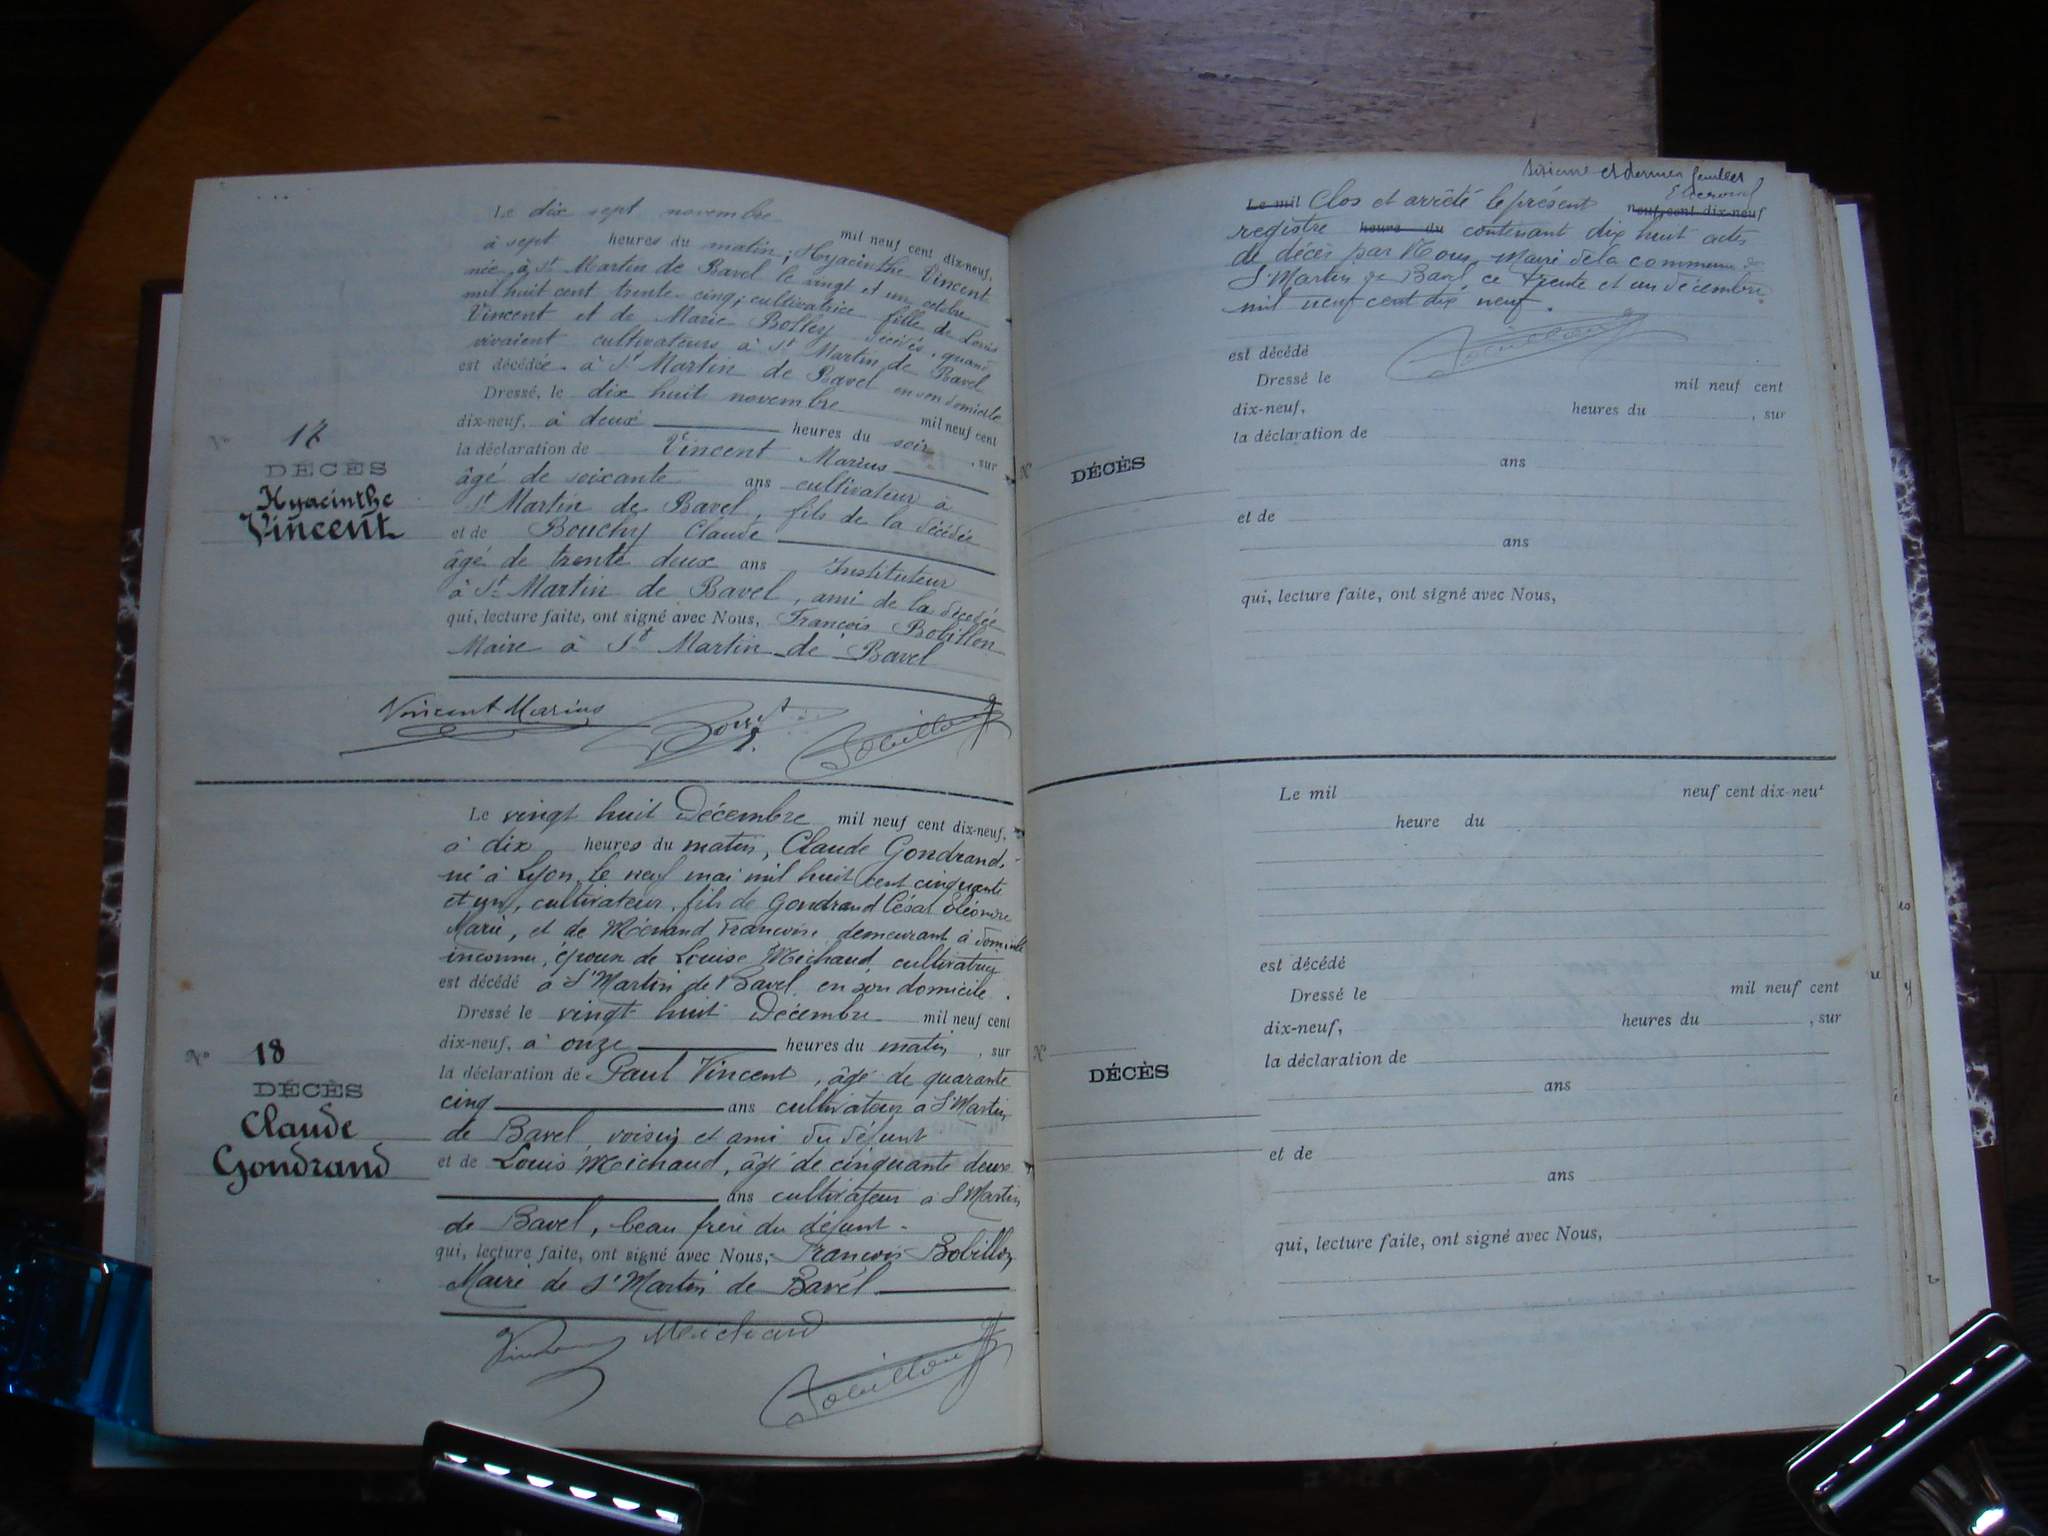 Le dix sept novembre mil neuf cent dix-neuf,
à sept heures du matin, Hyacinthe Vincent
née à St Martin de Bavel le vingt et un octobre
mil huit cent trente cinq, cultivatrice fille de Louis
Vincent et de Marie Bolley décédés, quand
vivaient cultivateurs à St Martin de Bavel
est décédée à St Martin de Bavel en son domicile
Dressé, le dix huit novembre mil neuf cent
dix-neuf, à deux heures du soir, sur
la déclaration de Vincent Marius
N° 17
âgé de soixante ans cultivateur à
DÉCÈS
Hyacinthe
St Martin de Bavel, fils de la décédée
Vincent
et de Bouchy Claude
âgé de trente deux ans Instituteur
à St Martin de Bavel, ami de la décédée
qui, lecture faite, ont signé avec Nous, François Bobillon
Maire à St Martin de Bavel
Vincent Marius Bobillon
Le vingt huit Décembre mil neuf cent dix-neuf,
à dix heures du matin, Claude Gondrand,
né à Lyon, le neuf mai mil huit cent cinquante
et un, cultivateur, fils de Gondrand César Eléonore
Marie, et de Menand Françoise demeurant à domicile
inconnu, époux de Louise Michaud, cultivatrice
est décédé à St Martin de Bavel en son domicile.
Dressé le vingt huit Décembre mil neuf cent
dix-neuf, à onze heures du matin, sur
N° 18
la déclaration de Paul Vincent, âgé de quarante
DÉCÈS
cinq ans cultivateur à St Martin
Claude
de Bavel, voisin et ami du défunt
Gondrand
et de Louis Michaud, âgé de cinquante deux
ans cultivateur à St Martin
de Bavel, beau frère du défunt.
qui, lecture faite, ont signé avec Nous, François Bobillon
Maire de St Martin de Bavel
Vincent Michaud
Bobillon
sixième et dernier feuillet
Le mil Clos et arrêté le présent neuf cent dix-neuf
registre heure du contenant dix huit actes
de décès par Nous, Maire de la commune de
St Martin de Bavel, ce trente et un décembre
mil neuf cent dix neuf.
Bobillon
est décédé
Dressé le mil neuf cent
dix-neuf, heures du , sur
la déclaration de
N° DÉCÈS
ans
et de
ans
qui, lecture faite, ont signé avec Nous,
Le mil neuf cent dix-neuf
heure du
est décédé
Dressé le mil neuf cent
dix-neuf, heures du , sur
la déclaration de
N°
DÉCÈS
ans
et de
ans
qui, lecture faite, ont signé avec Nous,